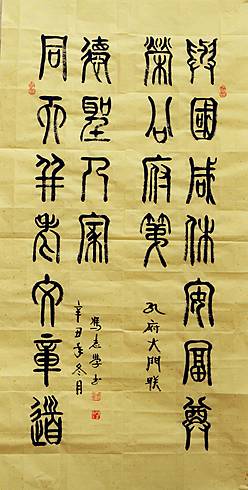 與國咸休安富尊
榮公府第
孔府大門聯
同天并老文章道
德聖人家
辛丑年冬月
馮志學書